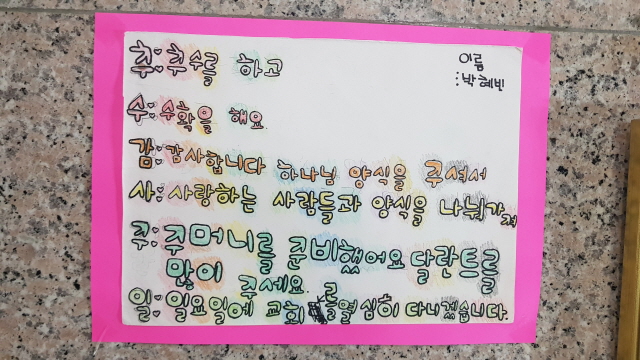 추: 추수를 하고
이름
: 박혜빈
수: 수확을 해요.
감: 감사합니다 하나님 양식을 주셔서
사: 사랑하는 사람들과 양식을 나눠가져
주: 주머니를 준비했어요 달란트를
많이 주세요.
일: 일요일에 교회를 열심히 다니겠습니다.